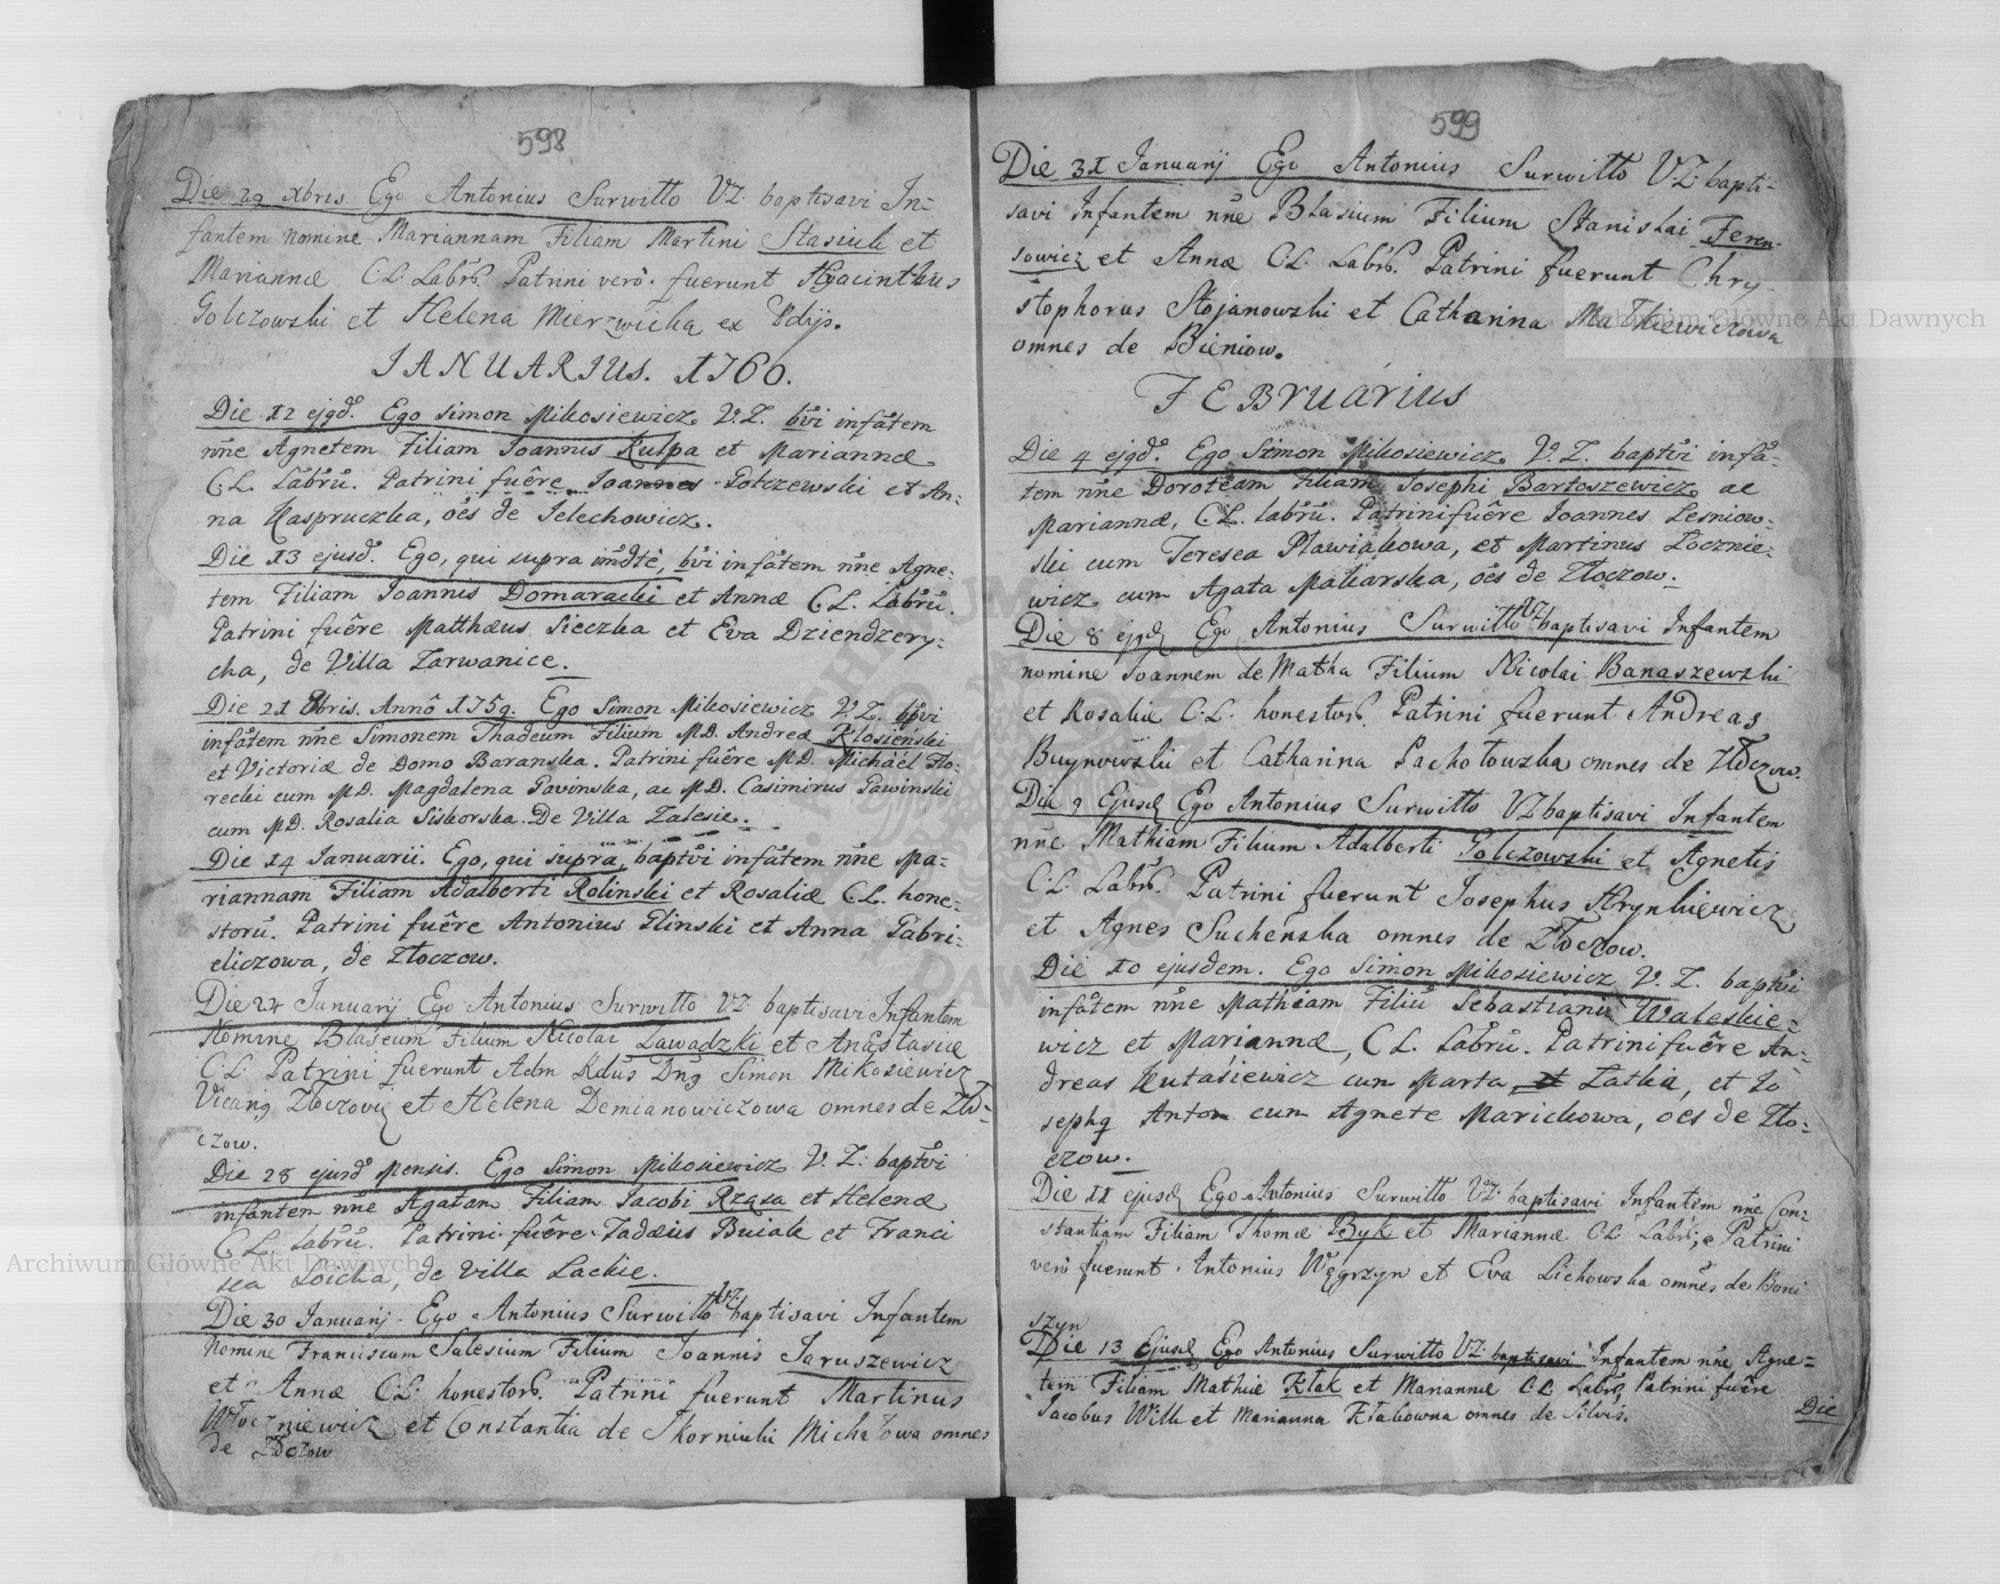 598
Die 29 Xbris Ego Antonius Surwitto V.Z. baptisavi In=
fantem nomine Mariannam Filiam Martini Stasiuk et
Mariannæ C.L. Labrb. Patrini verò fuerunt Hyacinthus
Golczowski et Helena Mierzwicka ex Pdijs.
IANUARIUS. 1760.
Die 12 ejgd. Ego Simon Mikosiewicz V.Z. bvi infatem
nne Agnetem Filiam Joannis Kulpa et Mariannæ
C.L. Labru. Patrini fuêre Joannes Golczewski et An=
na Kaspruczka, oes de Jelechowicz.
Die 13 ejusd. Ego, qui supra imdte, bvi infatem nne Agne=
tem Filiam Joannis Domaracki et Annæ C.L. Labru.
Patrini fuêre Matthæus Sieczka et Eva Dziendzery=
cha, de Villa Zarwanice.
Die 21 8bris. Annô 1759. Ego Simon Mikosiewicz V.Z. bptvi
infatem nne Simonem Thadeum Filium MD. Andreæ Klosieński
et Victoriæ de Domo Baranska. Patrini fuêre MD. Michaël Flo=
recki cum MD. Magdalena Pawinska, ac MD. Casimirus Pawinski
cum MD. Rosalia Siskorska. De Villa Zalesie.
Die 14 Januarii. Ego, qui supra, baptvi infatem nne Ma=
riannam Filiam Adalberti Rolinski et Rosaliæ C.L. hone=
storu. Patrini fuêre Antonius Glinski et Anna Gabri=
eliczowa, de Złoczow.
Die 24 Januarij Ego Antonius Surwitto V.Z. baptisavi Infantem
Nomine Blaseum Filium Nicolai Zawadzki et Anastasiæ
C.L. Patrini fuerunt Adm Rdus Dng Simon Mikosiewicz
Vicarig Złoczovie et Helena Demianowiczowa omnes de Zło=
czow.
Die 28 ejusd Mensis. Ego Simon Mikosiewicz V.Z. baptvi
infantem nne Agatam Filiam Jacobi Rząsa et Helenæ
C.L. Labru. Patrini fuêre Tadæus Buiak et Franci
sca Loicha, de Villa Lackie.
Die 30 Januarij Ego Antonius Surwitto V.Z. baptisavi Infantem
Nomine Franciscum Salesium Filium Joannis Jaruszewicz
et Annæ C.L. honestorb. Patrini fuerunt Martinus
Włoczniewicz et Constantia de Skorniuki Michałowa omnes
de Złoczow
599
Die 31 Januarij Ego Antonius Surwitto V.Z. bapti=
savi Infantem nne Blasium Filium Stanislai Feren=
sowicz et Annæ C.L. Labrb. Patrini fuerunt Chry
stophorus Stojanowski et Catharina Mathiewiczowa
omnes de Bieniow.
FEBRUARIUS
Die 4 ejgd. Ego Simon Mikosiewicz V.Z. baptvi infa=
tem nne Doroteam Filiam Josephi Bartoszewicz ac
Mariannæ, C.L. labru. Patrini fuêre Joannes Lesniow=
ski cum Teresea Pławiakowa, et Martinus Łocznie=
wicz cum Agata Makarska, oes de Złoczow.
Die 8 ejgd Ego Antonius Surwitto V.Z. baptisavi Infantem
nomine Joannem de Matha Filium Nicolai Banaszewski
et Rosaliæ C.L. honestorb. Patrini fuerunt Andreas
Buynowski et Catharina Pachołouzka omnes de Złoczow.
Die 9 Ejusd Ego Antonius Surwitto V.Z. baptisavi Infantem
nne Mathiam Filium Adalberti Golczowski et Agnetis
C.L. Labrb. Patrini fuerunt Josephus Hrynkiewicz
et Agnes Suchenska omnes de Złoczow.
Die 10 ejusdem. Ego Simon Mikosiewicz V.Z. baptvi
infatem nne Mathiam Filiu Sebastiani Waleskie=
wicz et Mariannæ, C.L. Labru. Patrini fuêre An=
dreas Kutasiewicz cum Marta Zatka, et Jo
sephg Anton cum Agnete Marickowa, oes de Zło=
czow.
Die 11 ejusd Ego Antonius Surwitto V.Z. baptisavi Infantem nne Con=
stantiam Filiam Thomæ Byk et Mariannæ C.L. Labrb; Patrini
verò fuerunt Antonius Węgrzyn et Eva Lichowska omnes de Boni
szyn
Die 13 Ejusd Ego Antonius Surwitto V.Z. baptisavi Infantem nne Agne=
tem Filiam Mathiæ Kłak et Mariannæ C.L. Labrb Patrini fuêre
Jacobus Wilk et Marianna Kłakowna omnes de Silvis.
Die
Archiwum Główne Akt Dawnych
Archiwum Główne Akt Dawnych